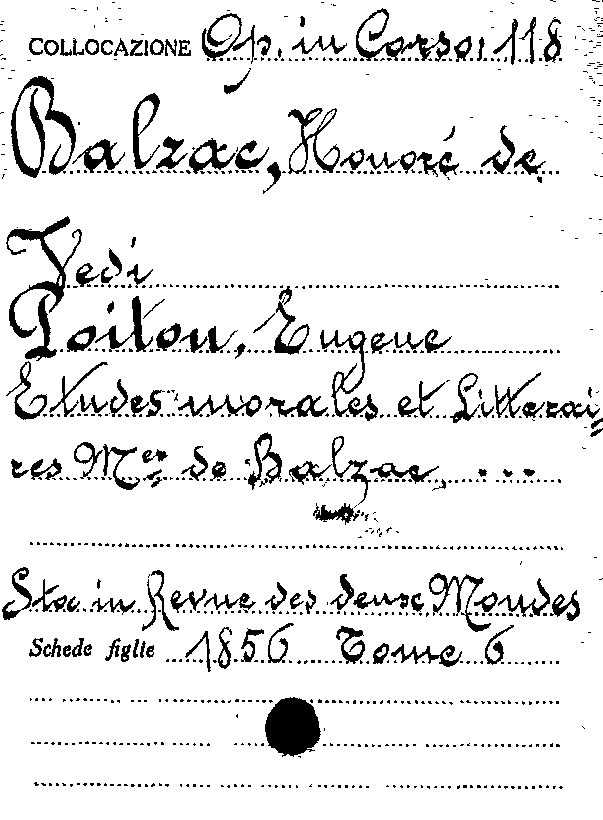 COLLOCAZIONE Op. in Corso: 118
Balzac, Honoré de
Vedi
Poitou, Eugene
Etudes morales et Litterai=
res Mer de Balzac, ...
Sta in Revue des deux Mondes
Schede figlie 1856 Tome 6